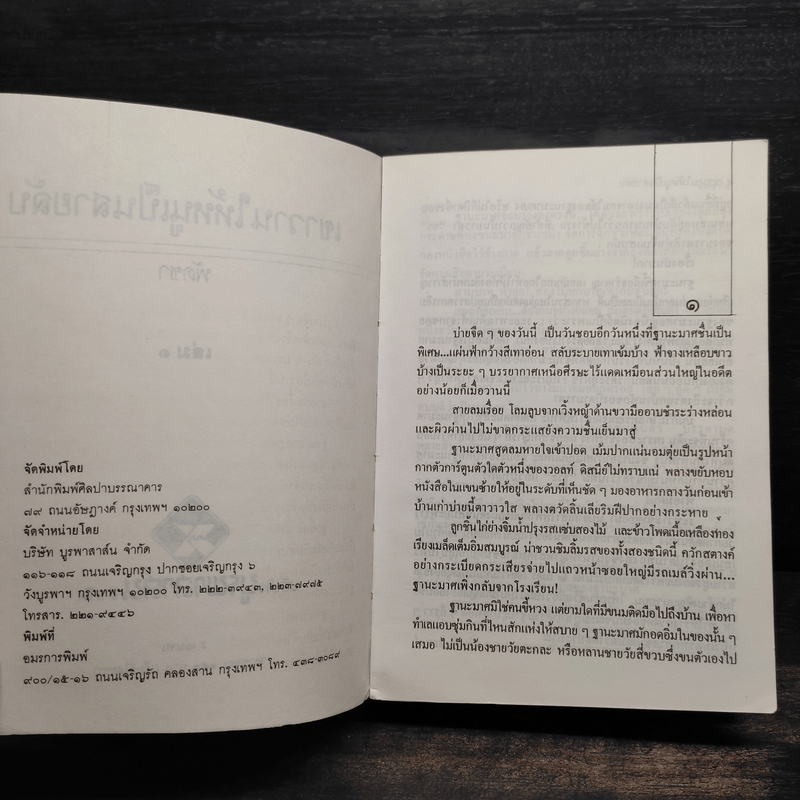 จัดพิมพ์โดย
สำนักพิมพ์ศิลปาบรรณาคาร
๗๙ ถนนอัษฎางค์ กรุงเทพฯ ๑๐๒๐๐
จัดจำหน่ายโดย
บริษัท บูรพาสาส์น จำกัด
๑๑๖-๑๑๘ ถนนเจริญกรุง ปากซอยเจริญกรุง ๖
วังบูรพาฯ กรุงเทพฯ ๑๐๒๐๐ โทร. ๒๒๒-๓๙๔๓, ๒๒๓-๗๙๗๕
โทรสาร. ๒๒๑-๙๔๔๖
พิมพ์ที่
อมรการพิมพ์
๙๐๐/๑๕-๑๖ ถนนเจริญรัถ คลองสาน กรุงเทพฯ โทร. ๔๓๘-๓๐๘๙
๑
บ่ายจืด ๆ ของวันนี้ เป็นวันชอบอีกวันหนึ่งที่ฐานะมาศชื่นเป็น
พิเศษ...แผ่นฟ้ากว้างสีเทาอ่อน สลับระบายเทาเข้มบ้าง ฟ้าจางเหลือบขาว
บ้างเป็นระยะ ๆ บรรยากาศเหนือศีรษะไร้แดดเหมือนส่วนใหญ่ในอดีต
อย่างน้อยก็เมื่อวานนี้
สายลมเรื่อย โลมลูบจากเวิ้งหญ้าด้านขวามืออาบชำระร่างหล่อน
และผิวผ่านไปไม่ขาดกระแสยังความชื่นเย็นมาสู่
ฐานะมาศสูดลมหายใจเข้าปอด เม้มปากแน่นอมตุ่ยเป็นรูปหน้า
กากตัวการ์ตูนตัวใดตัวหนึ่งของวอลท์ ดิสนีย์ไม่ทราบแน่ พลางขยับหอบ
หนังสือในแขนซ้ายให้อยู่ในระดับที่เห็นชัด ๆ มองอาหารกลางวันก่อนเข้า
บ้านเก่าบ่ายนี้ตาวาวใส พลางตวัดลิ้นเลียริมฝีปากอย่างกระหาย
ลูกชิ้นไก่ย่างจิ้มน้ำปรุงรสแซ่บสองไม้ และข้าวโพดเนื้อเหลืองท่อง
เรียงเมล็ดเต็มอิ่มสมบูรณ์ น่าชวนชิมลิ้มรสของทั้งสองชนิดนี้ ควักสตางค์
อย่างกระเบียดกระเสียรจ่ายไปแถวหน้าซอยใหญ่มีรถเมล์วิ่งผ่าน...
ฐานะมาศเพิ่งกลับจากโรงเรียน!
ฐานะมาศมิใช่คนขี้หวง แต่ยามใดที่มีขนมติดมือไปถึงบ้าน เพื่อหา
ทำเลแอบซุ่มกินที่ไหนสักแห่งให้สบาย ๆ ฐานะมาศมักอดอิ่มในของนั้น ๆ
เสมอ ไม่เป็นน้องชายวัยตะกละ หรือหลานชายวัยสี่ขวบซึ่งขนตัวเองไป